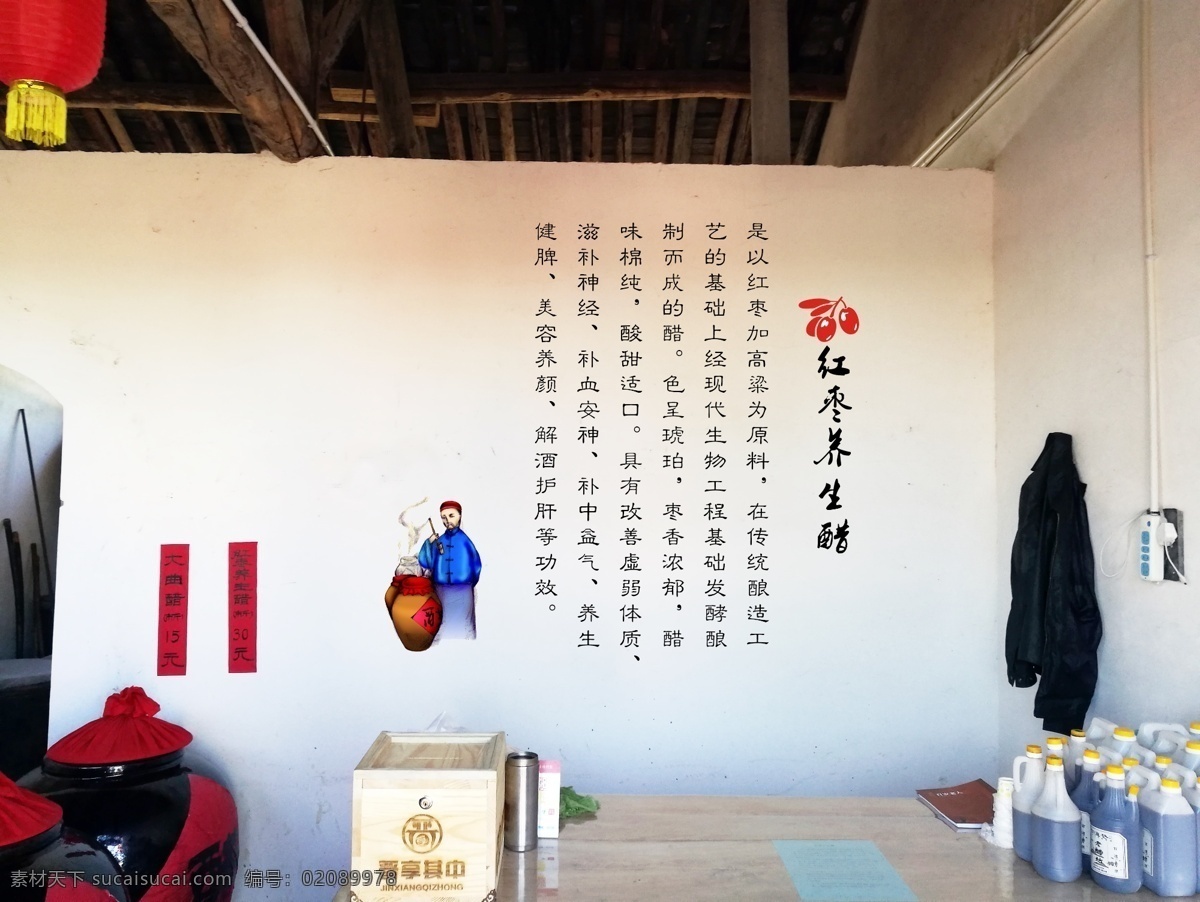 红枣养生醋
是以红枣加高粱为原料，在传统酿造工
艺的基础上经现代生物工程基础发酵酿
制而成的醋。色呈琥珀，枣香浓郁，醋
味棉纯，酸甜适口。具有改善虚弱体质、
滋补神经、补血安神、补中益气、养生
健脾、美容养颜、解酒护肝等功效。
大曲醋
15元
红枣养生醋
30元
酒
享其中
JINXIANGQIZHONG
素材天下 sucaisucai.com 编号：02089978